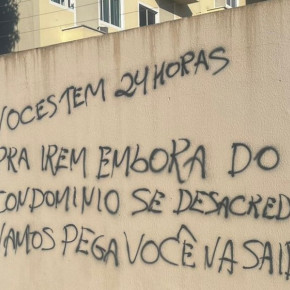 VOCES TEM 24 HORAS
PRA IREM EMBORA DO
CONDOMINIO SE DESACRED
VAMOS PEGA VOCÊ NA SAID